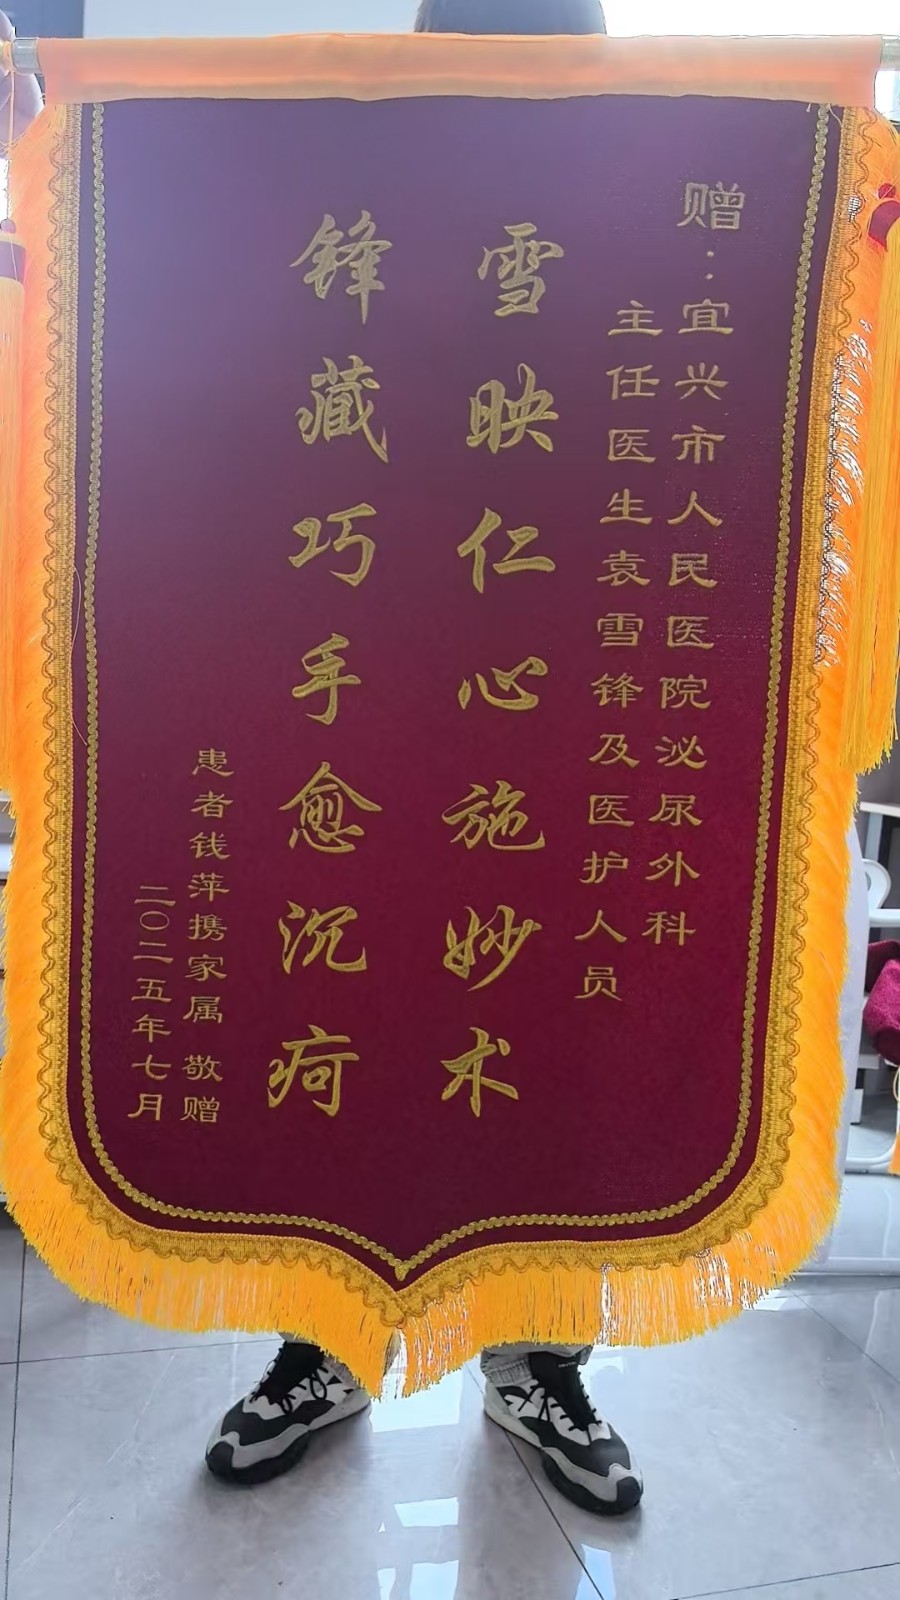 赠：宜兴市人民医院泌尿外科
主任医生袁雪锋及医护人员
雪映仁心施妙术
锋藏巧手愈沉疴
患者钱萍携家属 敬赠
二〇二五年七月